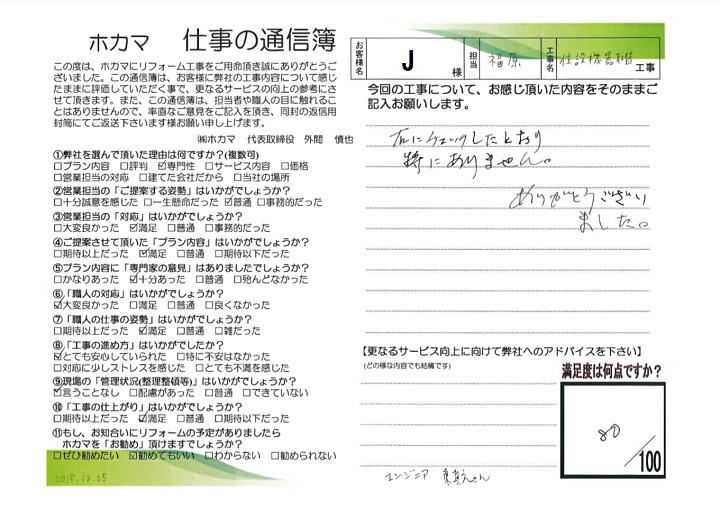 ホカマ 仕事の通信簿
この度は、ホカマにリフォーム工事をご用命頂き誠にありがとうご
ざいました。この通信簿は、お客様に弊社の工事内容について感じ
たままに評価していただく事で、更なるサービスの向上の参考にさ
せて頂きます。また、この通信簿は、担当者や職人の目に触れるこ
とはありませんので、率直なご意見をご記入を頂き、同封の返信用
封筒にてご返送下さいます様お願い申し上げます。
㈱ホカマ 代表取締役 外間 慎也
①弊社を選んで頂いた理由は何ですか？(複数可)
□プラン内容 □評判 ☑専門性 □サービス内容 □価格
□営業担当の対応 □建てた会社だから □当社の場所
②営業担当の「ご提案する姿勢」はいかがでしょうか？
□十分誠意を感じた □一生懸命だった ☑普通 □事務的だった
③営業担当の「対応」はいかがでしょうか？
□大変良かった ☑満足 □普通 □事務的だった
④ご提案させて頂いた「プラン内容」はいかがでしょうか？
□期待以上だった ☑満足 □普通 □期待以下だった
⑤プラン内容に「専門家の意見」はありましたでしょうか？
□かなりあった ☑十分あった □普通 □殆んどなかった
⑥「職人の対応」はいかがでしょうか？
☑大変良かった □満足 □普通 □良くなかった
⑦「職人の仕事の姿勢」はいかがでしょうか？
□期待以上だった ☑満足 □普通 □雑だった
⑧「工事の進め方」はいかがでしたか？
☑とても安心していられた □特に不安はなかった
□対応に少しストレスを感じた □とても不満を感じた
⑨現場の「管理状況(整理整頓等)」はいかがでしょうか？
☑言うことなし □配慮があった □普通 □できていない
⑩「工事の仕上がり」はいかがでしょうか？
□期待以上だった ☑満足 □普通 □期待以下だった
⑪もし、お知合いにリフォームの予定がありましたら
ホカマを「お勧め」頂けますでしょうか？
□ぜひ勧めたい ☑勧めてもいい □わからない □勧められない
2018.12.25
お客様名 J 様 担当 福原 工事名 住設機器取替 工事
今回の工事について、お感じ頂いた内容をそのままご
記入お願いします。
右にチェックしたとおり
特にありません。
ありがとうござい
ました。
【更なるサービス向上に向けて弊社へのアドバイスを下さい】
(どの様な内容でも結構です)
満足度は何点ですか？
80
/100
エンジニア